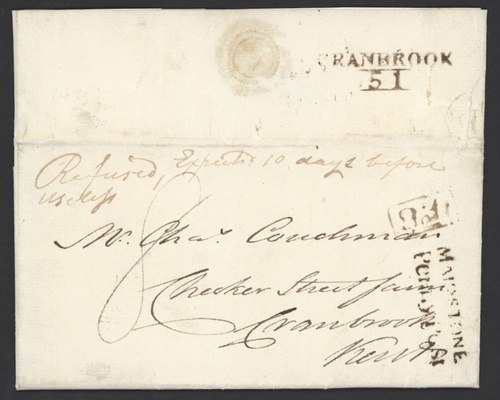 CRANBROOK
51
Refused, Expected 10 days before
useless
8
Mr. Chas. Couchman
Checker Street farm
Cranbrook
Kent
MAIDSTONE